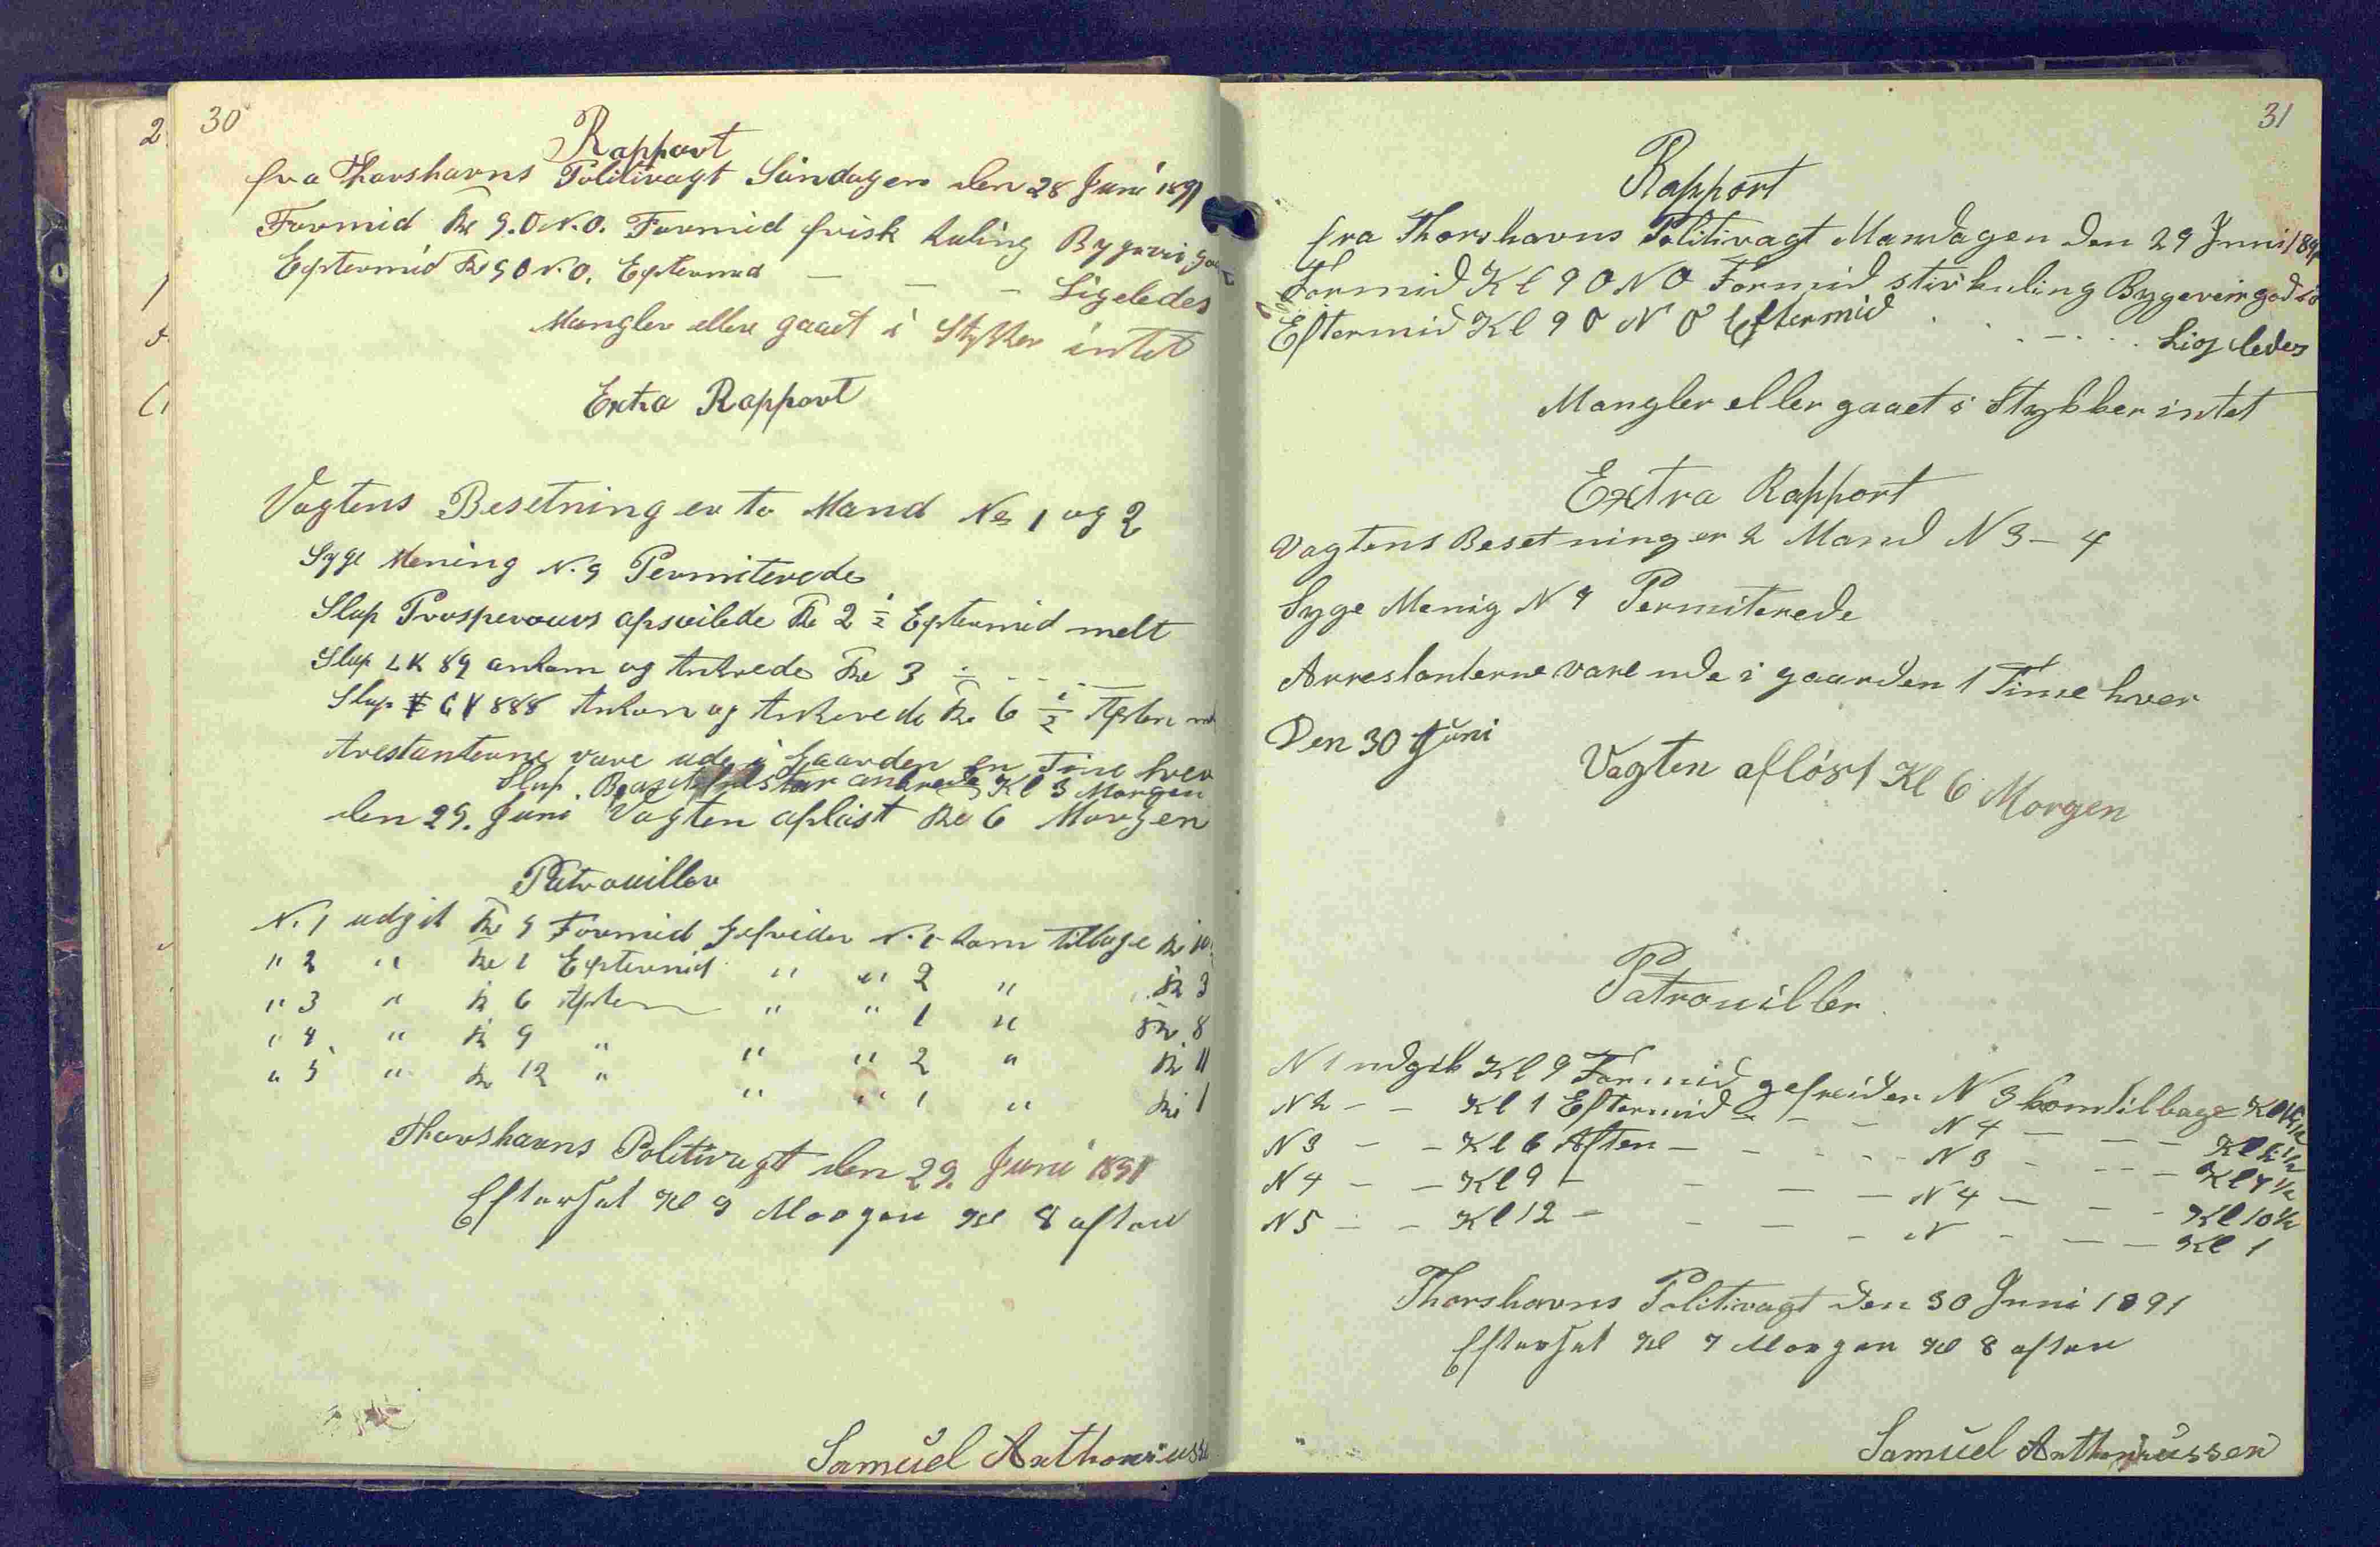 30
Rapport
fra Thorshavns Politivagt Søndagen den 28 Juni 1891
Formid Kl 9. O.N.O. Formid frisk Kuling Bygeveir
Eftermid Kl 9 O N.O. Eftermid — — — Ligeledes
Mangler eller gaaet i Stykker intet
Extra Rapport
Vagtens Besetning er to Mand No 1 og 2
Syge Mening N. 9 Permiterede
Slup Prosperouvs afseilede Kl 2 ½ Eftermid melt
Slup LK 89 ankom og Ankrede Kl 3
Slup GY 888 Ankom og Ankerede Kl 6 ½ Aften
Arestanterne vare ude i Gaarden en Time hver
Slup ankrede Kl 3 Morgen
den 29. Juni Vagten afløst Kl 6 Morgen
Patrouiller
N. 1 udgik Kl 9 Formid Gefreider N. 1 kom tilbage Kl 10
" 2 " Kl 1 Eftermid " " 2 " Kl 3
" 3 " Kl 6 Aften " " 1 " Kl 8
" 4 " Kl 9 " " " 2 " Kl 11
" 5 " Kl 12 " " " 1 " Kl 1
Thorshavns Politivagt den 29. Juni 1891
Efterset Kl 9 Morgen Kl 8 aften
Samuel Anthoniusse
31
Rapport
fra Thorshavns Politivagt Mandagen den 29 Juni 1891
Formid Kl 9 O N O Formid stiv kuling Bygeveir
Eftermid Kl 9 O N O Eftermid . . - . . Ligeledes
Mangler eller gaaet i Stykker intet
Extra Rapport
Vagtens Besetning er 2 Mand N 3 - 4
Syge Menig N 9 Permiterede
Arrestanterne vare ude i gaarden 1 Time hver
Den 30 Juni
Vagten afløst Kl 6 Morgen
Patrouiller
N 1 udgik Kl 9 Formid gefreider N 3 kom tilbage Kl
N 2 - - Kl 1 Eftermid - - - N 4 - - - Kl 2 ½
N 3 - - Kl 6 Aften - - - - N 3 - - - Kl 7 ½
N 4 - - Kl 9 - - - - N 4 - - - Kl 10 ½
N 5 - - Kl 12 - - - - N - - - Kl 1
Thorshavns Politivagt den 30 Juni 1891
Efterset Kl 7 Morgen Kl 8 aften
Samuel Anthoniussen